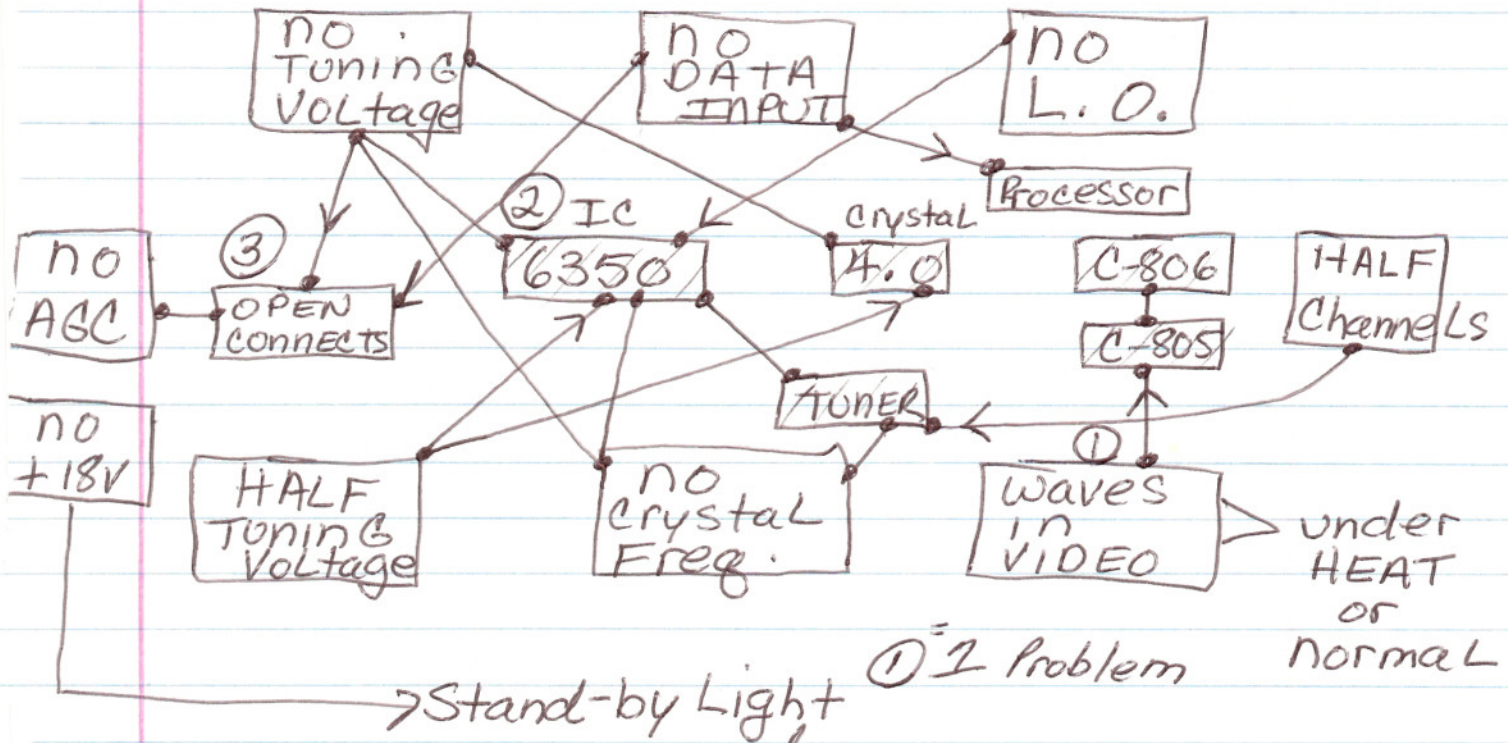 no
TUNING
VOLtage
no
DATA
INPUT
no
L.O.
Processor
② IC
6350
Crystal
4.0
C-806
C-805
HALF
ChanneLs
no
AGC
③
OPEN
CONNECTS
TUNER
no
+18V
HALF
TUNING
VoLtage
no
CrystaL
Freq.
①
waves
in
VIDEO
under
HEAT
or
normaL
① = 1 Problem
Stand-by Light